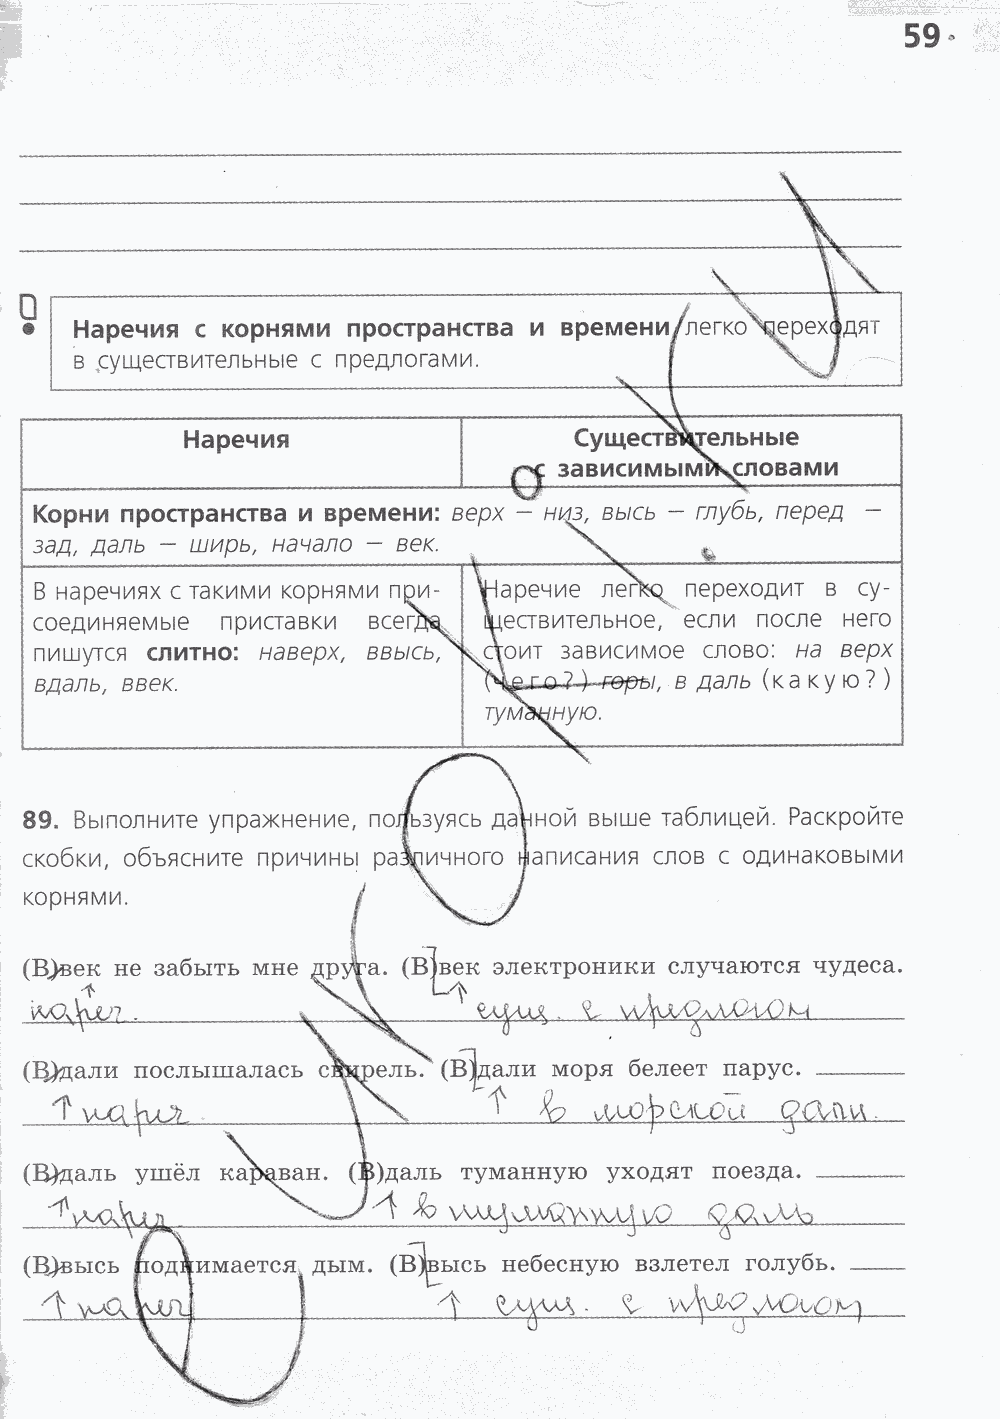 59
Наречия с корнями пространства и времени легко переходят
в существительные с предлогами.
Наречия
Существительные
с зависимыми словами
Корни пространства и времени: верх – низ, высь – глубь, перед –
зад, даль – ширь, начало – век.
В наречиях с такими корнями при-
соединяемые приставки всегда
пишутся слитно: наверх, ввысь,
вдаль, ввек.
Наречие легко переходит в су-
ществительное, если после него
стоит зависимое слово: на верх
(чего?) горы, в даль (какую?)
туманную.
89. Выполните упражнение, пользуясь данной выше таблицей. Раскройте
скобки, объясните причины различного написания слов с одинаковыми
корнями.
(В)век не забыть мне друга. (В)век электроники случаются чудеса.
нареч. сущ. с предлогом
(В)дали послышалась свирель. (В)дали моря белеет парус.
нареч. в морской дали.
(В)даль ушёл караван. (В)даль туманную уходят поезда.
нареч в туманную даль
(В)высь поднимается дым. (В)высь небесную взлетел голубь.
нареч сущ. с предлогом